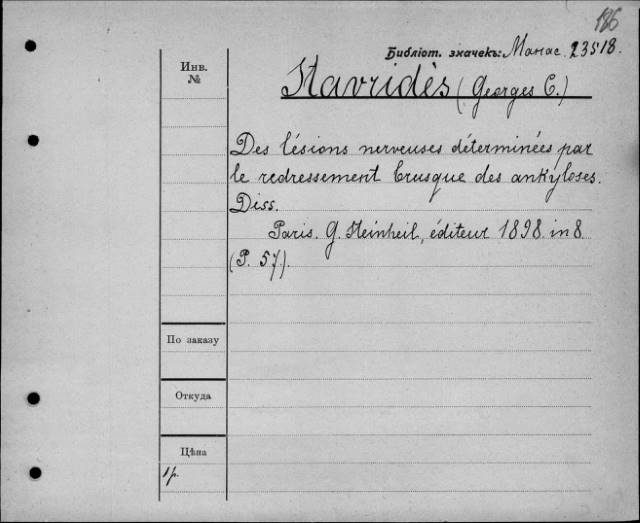 186
Библіот. значекъ: Манас. 23518.
Инв.
№
Stavridès (Georges C.)
Des lésions nerveuses déterminées par
le redressement brusque des ankyloses.
Diss.
Paris. G. Steinheil, éditeur 1898. in 8
(P. 57).
По заказу
Откуда
Цѣна
1р.